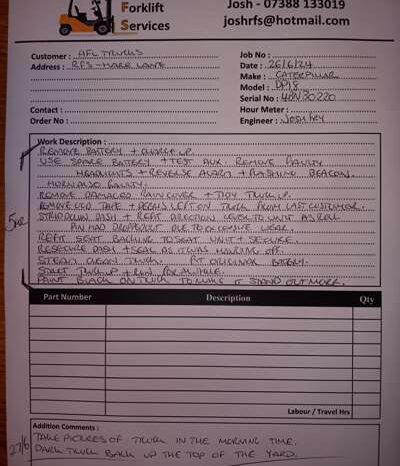 Forklift Josh - 07388 133019
Services joshrfs@hotmail.com
Customer : AFL TRUCKS Job No :
Address : RFS - HARE LANE Date : 26/6/24
Make : CATERPILLAR
Model : DP18
Serial No : 4BN30220
Contact : Hour Meter :
Order No : Engineer : Josh
Work Description :
REMOVE BATTERY + CHARGE UP.
USE SPARE BATTERY + TEST AUX. REMOVE FAULTY
HEADLIGHTS + REVERSE ALARM + FLASHING BEACON.
HORN ALSO FAULTY.
REMOVE DAMAGED RAIN COVER + TIDY TRUCK UP.
REMOVE OLD TAPE + DEBRIS LEFT ON TRUCK FROM LAST CUSTOMER.
STRIP DOWN DASH + REFIT DIRECTION LEVER TO UNIT AS ROLL
PIN HAD DROPPED OUT DUE TO EXCESSIVE WEAR.
REFIT SEAT BACKING TO SEAT UNIT + SECURE.
RESECURE DASH + SEAL AS IT WAS HANGING OFF.
STEAM CLEAN TRUCK. FIT ORIGINAL BATTERY.
START TRUCK UP + RUN FOR A WHILE.
PAINT BLACK ON TRUCK TO MAKE IT STAND OUT MORE.
Part Number Description Qty
Labour / Travel Hrs
Addition Comments :
27/6 TAKE PICTURES OF TRUCK IN THE MORNING TIME.
PARK TRUCK BACK UP THE TOP OF THE YARD.